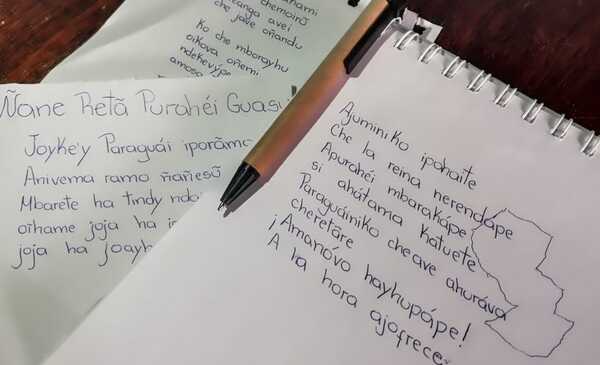 che jave oñandu
Ko che mborayhu
oikova oñemi
ndekevýpe
Ñane Retã Purahéi Guasu
Joyke'y Paraguái
Anivema ramo ñañesũ
Mbarete ha tindy
oñhame joja ha
joja ha
Ajuminiko ipohaite
Che la reina nerendápe
Apurahéi mbarakápe
si ahátama katuete
Paraguáiniko cheave ahuráva
cheretãre
¡Amanóvo hayhupápe!
A la hora ajofrece